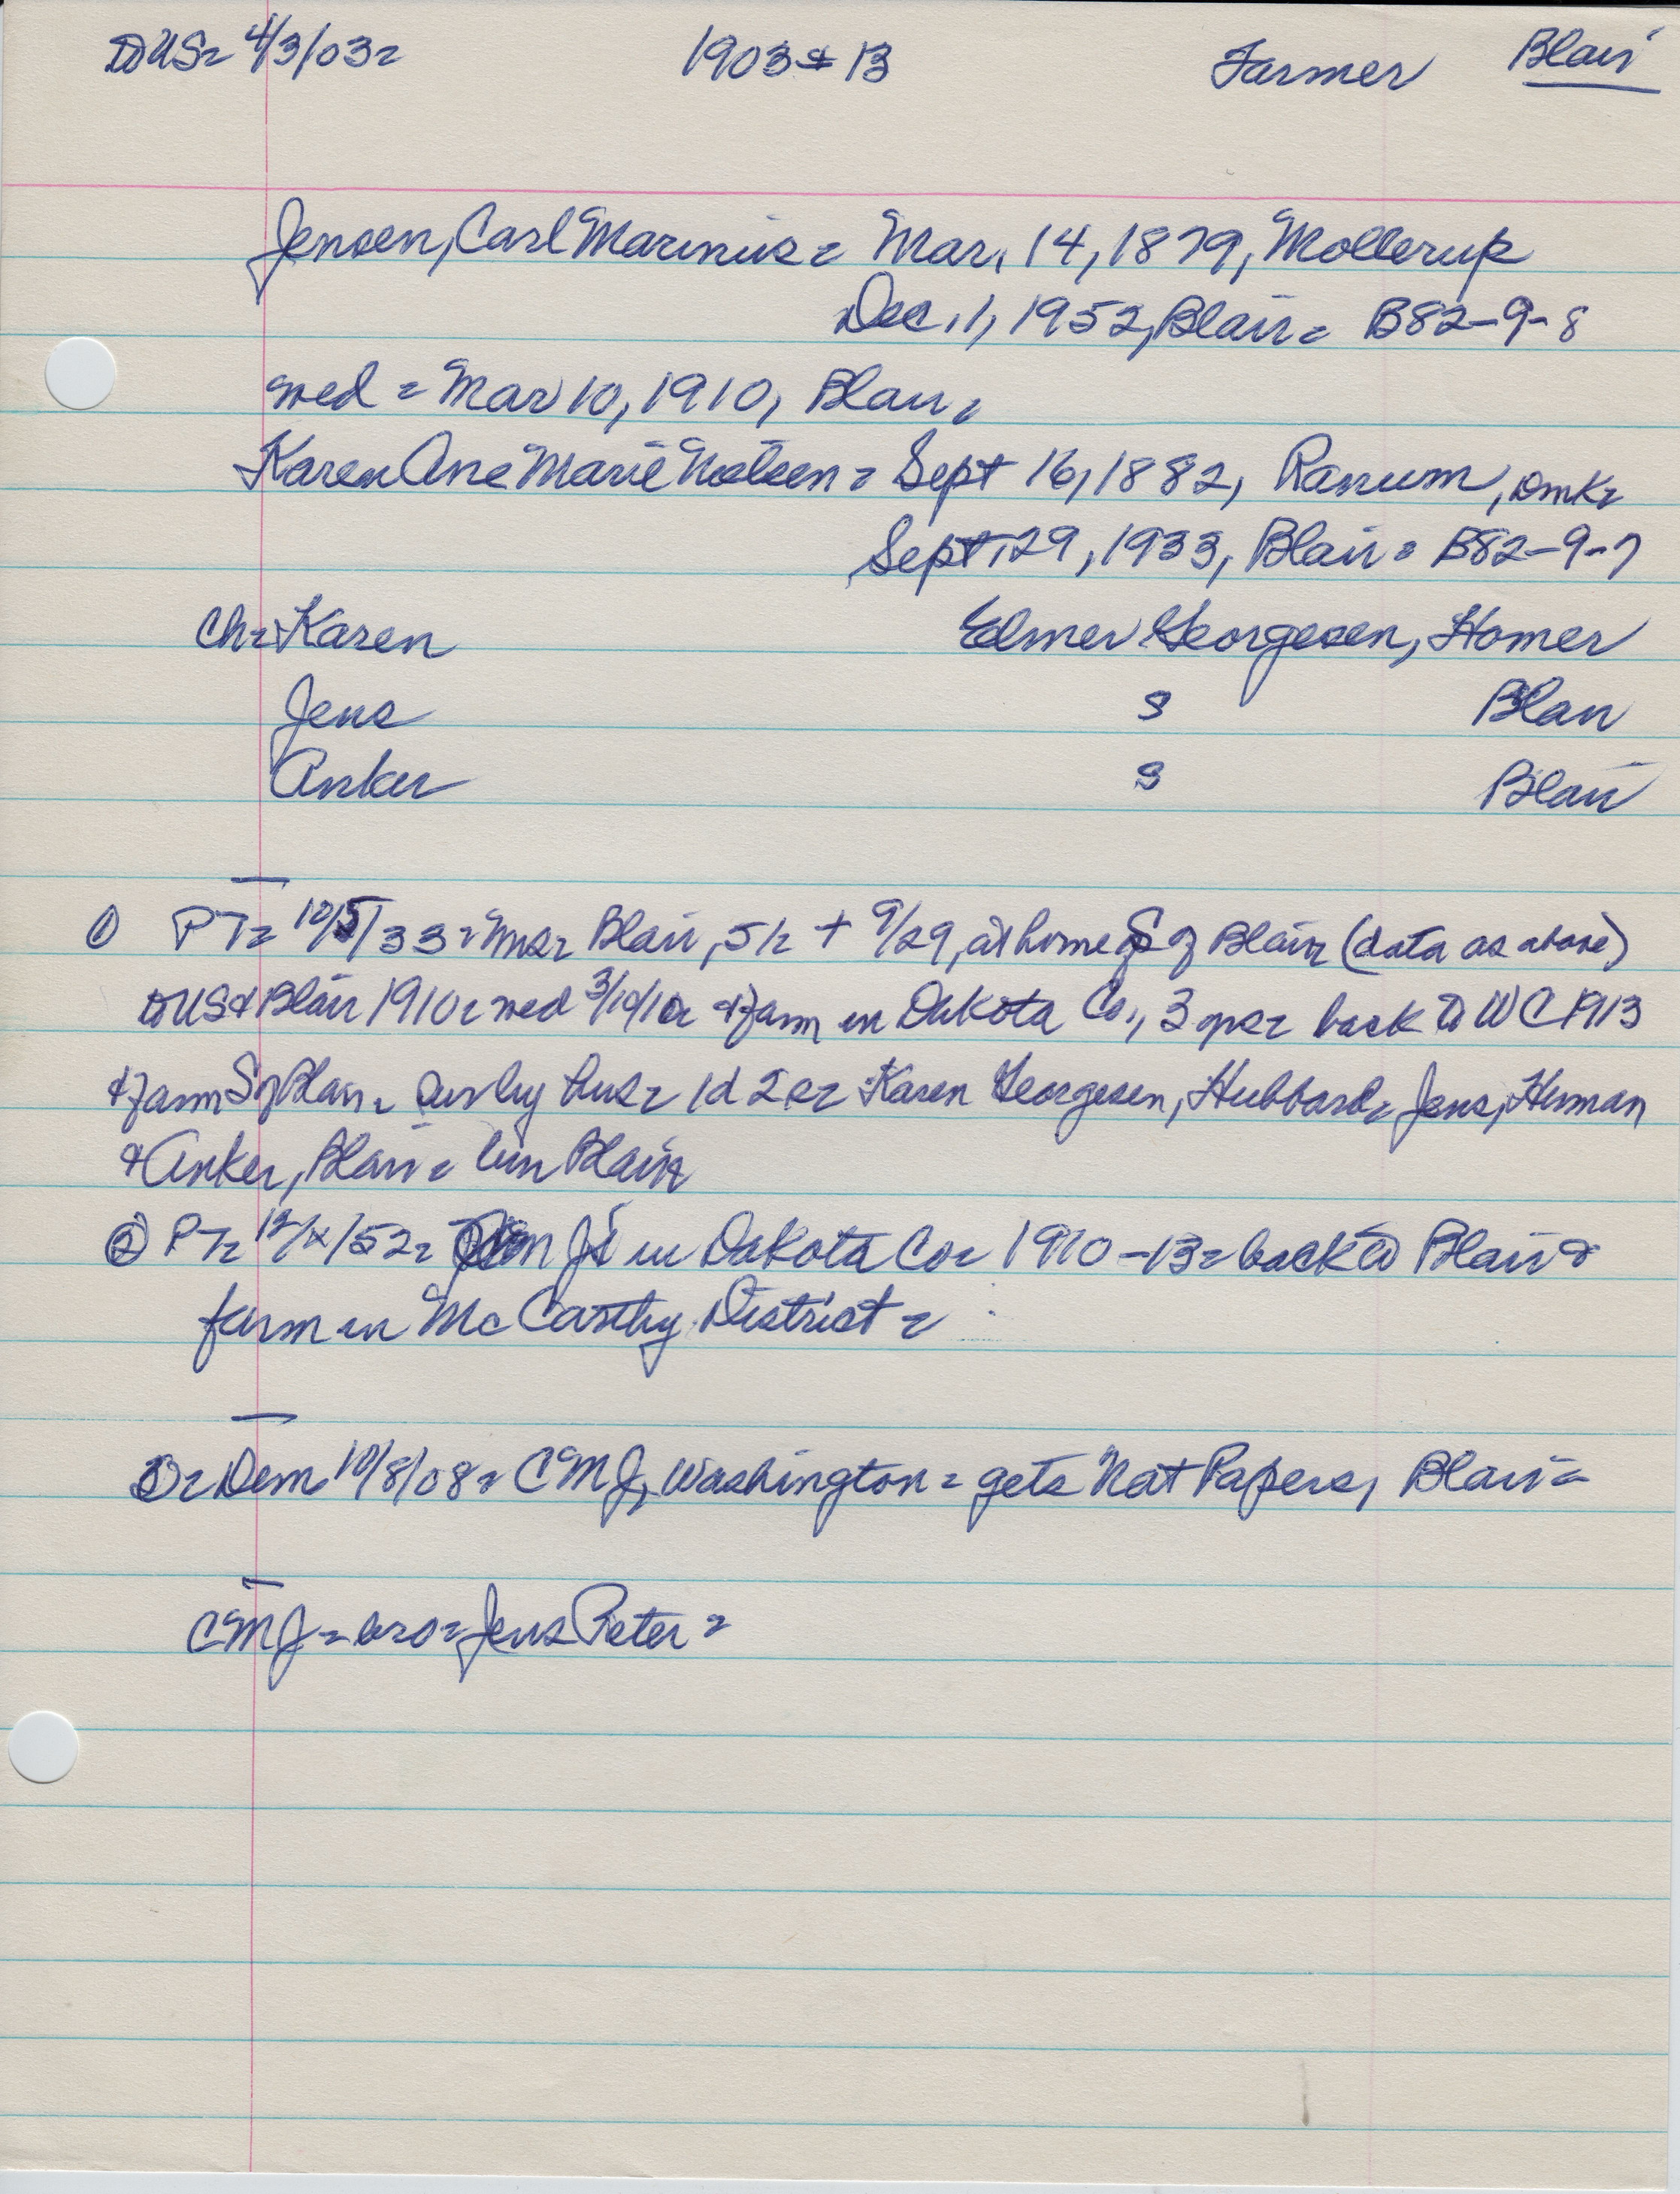 to US = 4/3/03 = 1903 & 13 Farmer Blair
Jensen, Carl Marinus = Mar. 14, 1879, Mollerup
Dec. 1, 1952, Blair = B82-9-8
wed = Mar 10, 1910, Blair =
Karen Ane Marie Nielsen = Sept 16, 1882, Ranum, Dmk =
Sept. 29, 1933, Blair = B82-9-7
Ch = Karen Elmer Georgesen, Homer
Jens S Blair
Anker S Blair
① PT = 10/5/33 = Mrs = Blair, 51 = + 9/29, at home S of Blair (data as above)
to US & Blair 1910 = wed 3/10/10 = & farm in Dakota Co., 3 yrs = back to WC 1913
& farm S of Blair = surv by hus = 1d 2s = Karen Georgesen, Hubbard = Jens, Herman
& Anker, Blair = bur Blair
② PT = 12/4/52 = J's in Dakota Co = 1910-13 = back to Blair &
farm in McCarthy District =
D = Dem 10/8/08 = CMJ, Washington = gets Nat Papers, Blair =
CMJ = bro = Jens Peter =